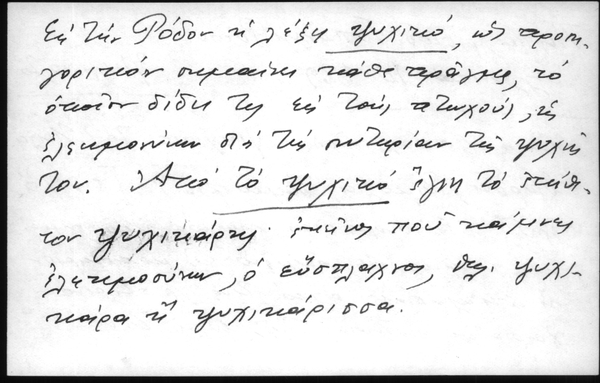 Εἰς τὴν Ῥόδον ἡ λέξη ψυχικό, ὡς προση-
γορικόν σημαίνει κάθε πρᾶγμα, τὸ
ὁποῖον δίδει τις εἰς τοὺς πτωχούς, ὡς
ἐλεημοσύνην διὰ τὴν σωτηρίαν τῆς ψυχῆς
του. Ἀπὸ τὸ ψυχικό ἔγινε τὸ ἐπίθε-
τον ψυχικάρης· ἐκεῖνος ποὺ κάμνει
ἐλεημοσύνην, ὁ εὔσπλαχνος, θηλ. ψυχι-
κάρα ἢ ψυχικάρισσα.